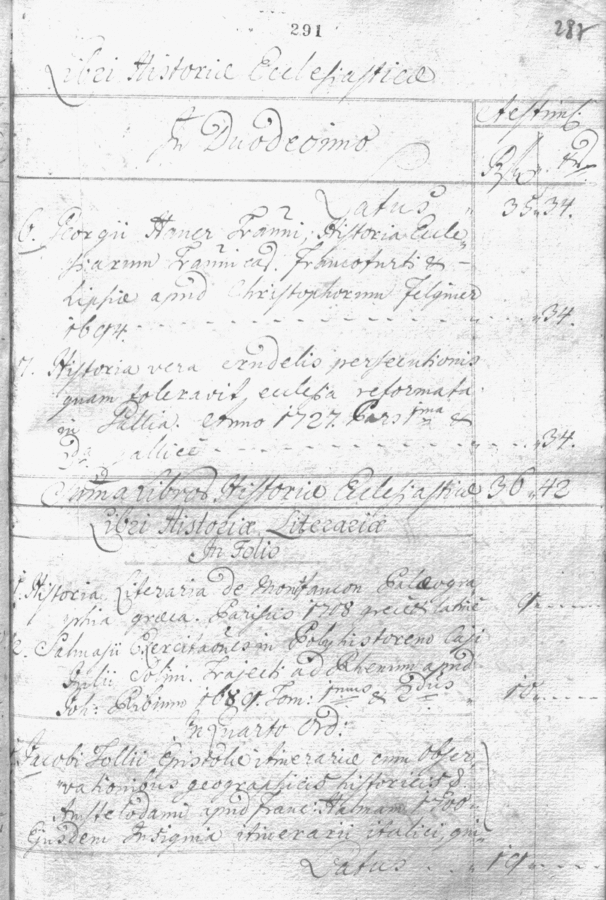 291
287
Libri Historiæ Ecclesiasticæ
Aestim.
In Duodecimo
Latus 35 34.
6. Georgii Haner Tranni, Historia Eccle-
siarum Trannicar. Francofurti &
Lipsiæ apud Christophorum Felginer
1694. 34.
7. Historia vera crudelis persecutionis
quam toleravit ecclesia reformata
in Gallia. Anno 1727. Pars 1ma &
2da gallice 34.
Summa libros Historiæ Ecclesiasticæ 36 42
Libri Historiæ Literariæ
In Folio
1. Historia Literaria de Montfaucon Palæogra
phia græca. Parisiis 1708 græce latine 9
2. Salmasii Exercitaões in Polyhistorem Caji
Julii Solini. Trajecti ad Rhenum apud
Joh: Ribium 1689. Tom: 1mus & 2dus 10
In Quarto Ord:
1. Jacobi Tollii Epistolæ itinerariæ cum Obser
vationibus geographicis historicis &
Amstelodami apud Franc: Halmam 1700
Ejusdem Insignia itinerarii italici, qui
Latus 19